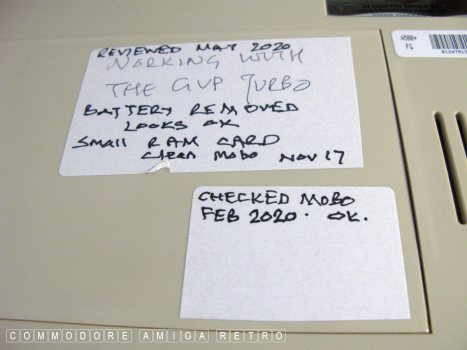 REVIEWED MAY 2020
WORKING WITH
THE GVP TURBO
BATTERY REMOVED
LOOKS OK
SMALL RAM CARD
CLEAN MOBO NOV 17
CHECKED MOBO
FEB 2020. OK.
A500+
COMMODORE AMIGA RETRO